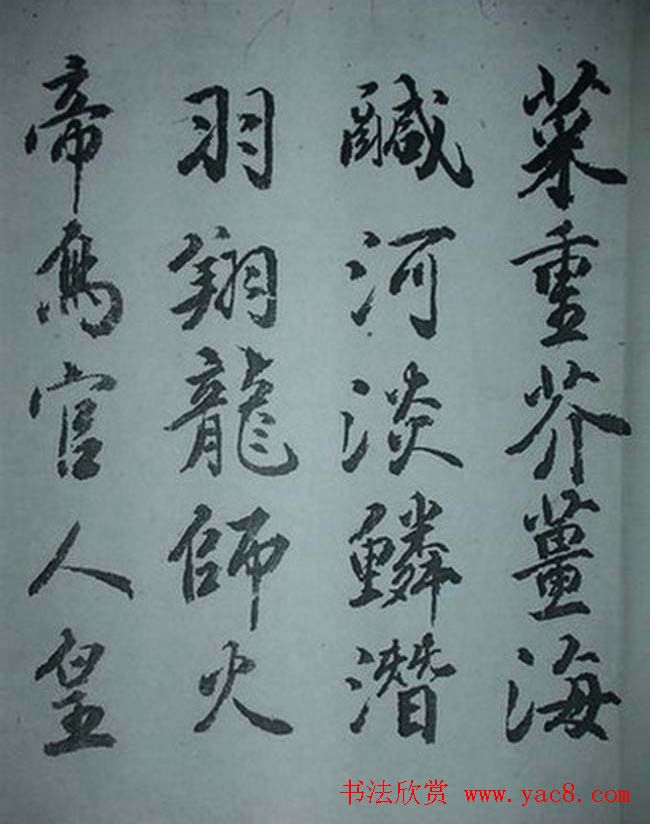 菜重芥薑海
鹹河淡鱗潛
羽翔龍師火
帝鳥官人皇
书法欣赏 www.yac8.com